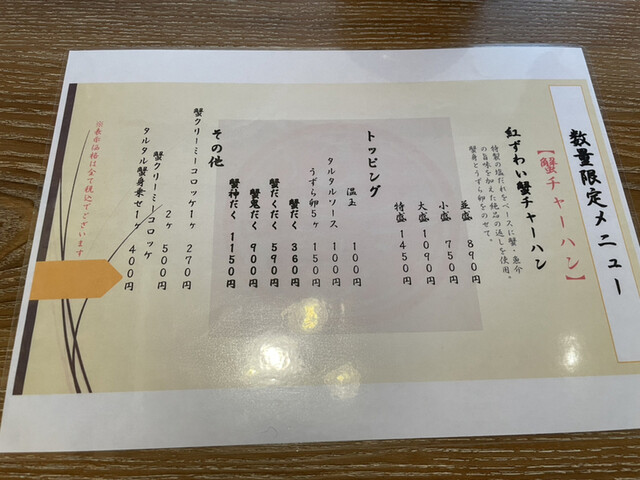 数量限定メニュー
【蟹チャーハン】
紅ずわい蟹チャーハン
特製の塩だれをベースに蟹・魚介
の旨味を加えた絶品の返しを使用。
蟹身とうずら卵をのせて。
並盛 890円
小盛 750円
大盛 1090円
特盛 1450円
トッピング
温玉 100円
タルタルソース 100円
うずら卵5ヶ 150円
蟹だく 360円
蟹だくだく 590円
蟹鬼だく 900円
蟹神だく 1150円
その他
蟹クリーミーコロッケ1ヶ 270円
蟹クリーミーコロッケ
2ヶ 500円
タルタル蟹身乗せ1ヶ 400円
※表示価格は全て税込でございます